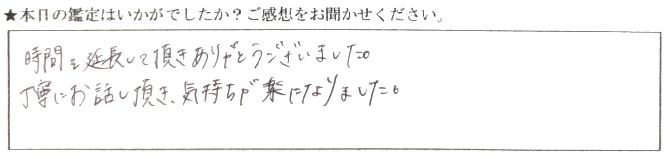 ★本日の鑑定はいかがでしたか？ご感想をお聞かせください。
時間を延長して頂きありがとうございました。
丁寧にお話し頂き、気持ちが楽になりました。